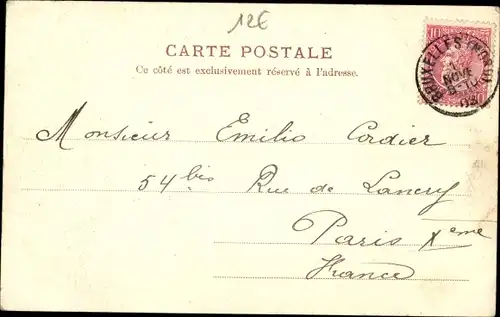 12€
CARTE POSTALE
Ce côté est exclusivement réservé à l'adresse.
10
BRUXELLES
NOVE
8-10
Monsieur Emilio Cordier
54 bis Rue de Lancry
Paris Xeme
France